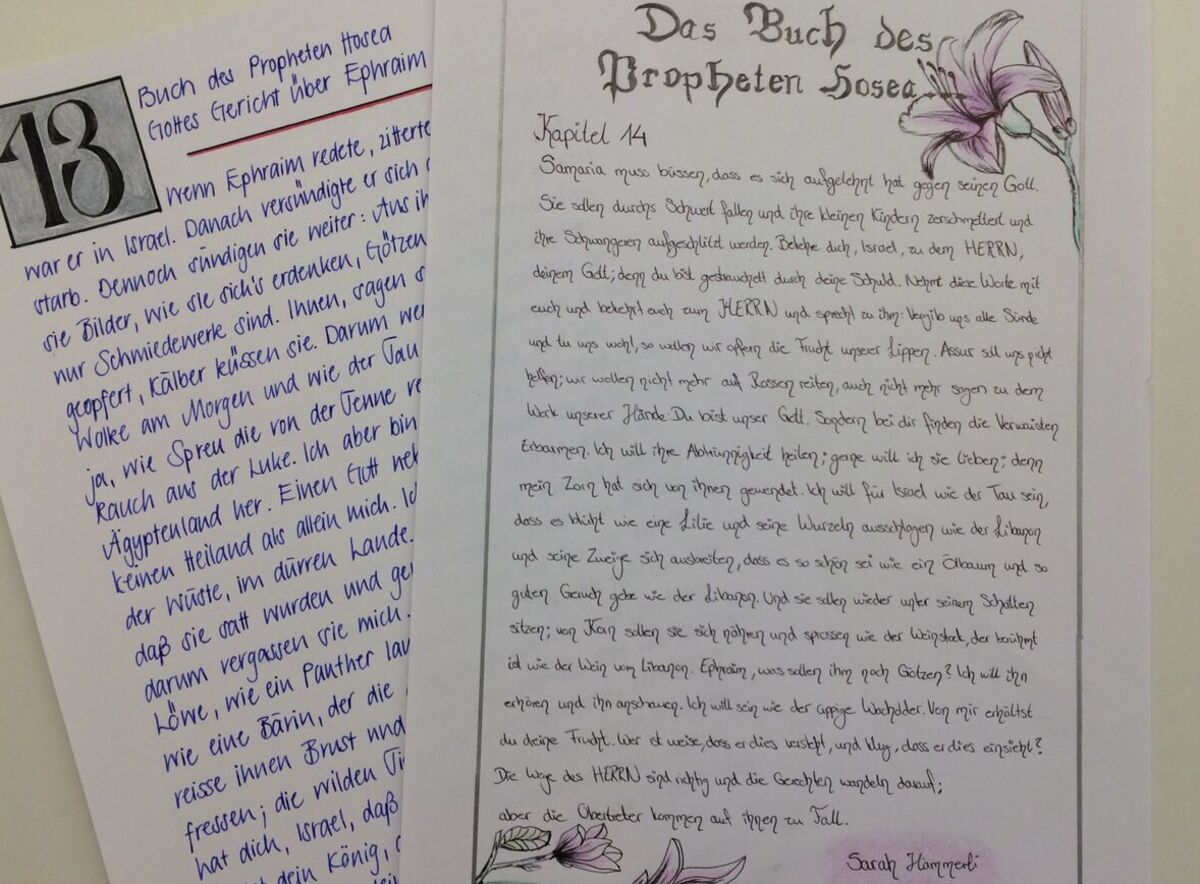 13
Buch des Propheten Hosea
Gottes Gericht über Ephraim
Wenn Ephraim redete, zitterte
war er in Israel. Danach versündigte er sich
starb. Dennoch sündigen sie weiter: Aus ih
sie Bilder, wie sie sich's erdenken, Götzen
nur Schmiedewerke sind. Ihnen, sagen s
geopfert, Kälber küssen sie. Darum we
Wolke am Morgen und wie der Tau
ja, wie Spreu die von der Tenne ve
Rauch aus der Luke. Ich aber bin
Ägyptenland her. Einen Gott neb
keinen Heiland als allein mich. Ic
der Wüste, im dürren Lande.
daß sie satt wurden und ge
darum vergassen sie mich.
Löwe, wie ein Panther lau
wie eine Bärin, der die
reisse ihnen Brust und
fressen; die wilden Ti
hat dich, Israel, daß
dein König,
Das Buch des
Propheten Hosea
Kapitel 14
Samaria muss büssen, dass es sich aufgelehnt hat gegen seinen Gott.
Sie sollen durchs Schwert fallen und ihre kleinen Kindern zerschmettert und
ihre Schwangeren aufgeschlitzt werden. Bekehre dich, Israel, zu dem HERRN,
deinem Gott; denn du bist gestrauchelt durch deine Schuld. Nehmt diese Worte mit
euch und bekehrt euch zum HERRN und sprecht zu ihm: Vergib uns alle Sünde
und tu uns wohl, so wollen wir opfern die Frucht unserer Lippen. Assur soll uns nicht
helfen; wir wollen nicht mehr auf Rossen reiten, auch nicht mehr sagen zu dem
Werk unserer Hände: Du bist unser Gott. Sondern bei dir finden die Verwaisten
Erbarmen. Ich will ihre Abtrünnigkeit heilen; gerne will ich sie lieben; denn
mein Zorn hat sich von ihnen gewendet. Ich will für Israel wie der Tau sein,
dass es blüht wie eine Lilie und seine Wurzeln ausschlagen wie der Libanon
und seine Zweige sich ausbreiten, dass es so schön sei wie ein Ölbaum und so
guten Geruch gebe wie der Libanon. Und sie sollen wieder unter seinem Schatten
sitzen; von Korn sollen sie sich nähren und sprossen wie der Weinstock, der berühmt
ist wie der Wein vom Libanon. Ephraim, was sollen ihm noch Götzen? Ich will ihn
erhören und ihn anschauen. Ich will sein wie der üppige Wacholder. Von mir erhältst
du deine Frucht. Wer ist weise, dass er dies versteht, und klug, dass er dies einsieht?
Die Wege des HERRN sind richtig und die Gerechten wandeln darauf;
aber die Übertreter kommen auf ihnen zu Fall.
Sarah Hämmerli